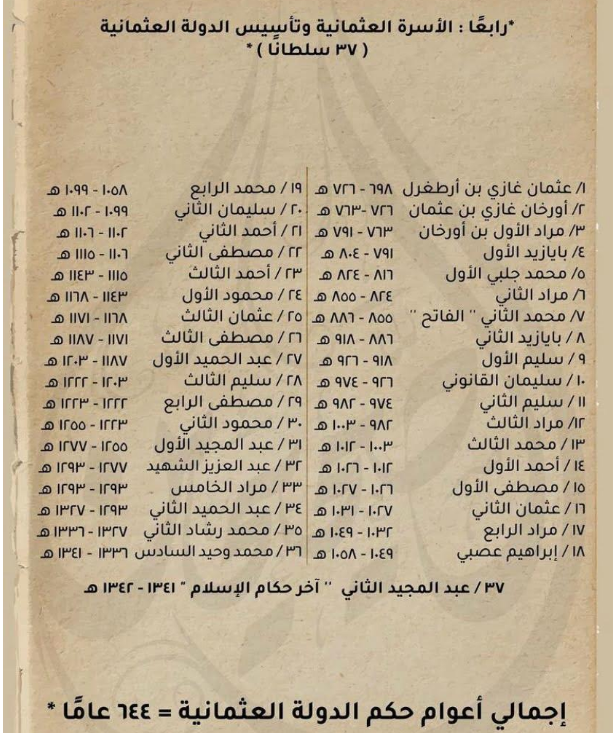 *رابعًا : الأسرة العثمانية وتأسيس الدولة العثمانية
( ٣٧ سلطانًا ) *
١/ عثمان غازي بن أرطغرل ٦٩٨ - ٧٢٦ هـ
٢/ أورخان غازي بن عثمان ٧٢٦ -٧٦٣ هـ
٣/ مراد الأول بن أورخان ٧٦٣ - ٧٩١ هـ
٤/ بايازيد الأول ٧٩١ - ٨٠٤ هـ
٥/ محمد جلبي الأول ٨١٦ - ٨٢٤ هـ
٦/ مراد الثاني ٨٢٤ - ٨٥٥ هـ
٧/ محمد الثاني " الفاتح " ٨٥٥ - ٨٨٦ هـ
٨ / بايازيد الثاني ٨٨٦ - ٩١٨ هـ
٩ / سليم الأول ٩١٨ - ٩٢٦ هـ
١٠ / سليمان القانوني ٩٢٦ - ٩٧٤ هـ
١١ / سليم الثاني ٩٧٤ - ٩٨٢ هـ
١٢/ مراد الثالث ٩٨٢ - ١٠٠٣ هـ
١٣ / محمد الثالث ١٠٠٣ - ١٠١٢ هـ
١٤ / أحمد الأول ١٠١٢ - ١٠٢٦ هـ
١٥ / مصطفى الأول ١٠٢٦ - ١٠٢٧ هـ
١٦ / عثمان الثاني ١٠٢٧ - ١٠٣١ هـ
١٧ / مراد الرابع ١٠٣٢ - ١٠٤٩ هـ
١٨ / إبراهيم عصبي ١٠٤٩ - ١٠٥٨ هـ
١٩ / محمد الرابع ١٠٥٨ - ١٠٩٩ هـ
٢٠ / سليمان الثاني ١٠٩٩ - ١١٠٢ هـ
٢١ / أحمد الثاني ١١٠٢ - ١١٠٦ هـ
٢٢ / مصطفى الثاني ١١٠٦ - ١١١٥ هـ
٢٣ / أحمد الثالث ١١١٥ - ١١٤٣ هـ
٢٤ / محمود الأول ١١٤٣ - ١١٦٨ هـ
٢٥ / عثمان الثالث ١١٦٨ - ١١٧١ هـ
٢٦ / مصطفى الثالث ١١٧١ - ١١٨٧ هـ
٢٧ / عبد الحميد الأول ١١٨٧ - ١٢٠٣ هـ
٢٨ / سليم الثالث ١٢٠٣ - ١٢٢٢ هـ
٢٩ / مصطفى الرابع ١٢٢٢ - ١٢٢٣ هـ
٣٠ / محمود الثاني ١٢٢٣ - ١٢٥٥ هـ
٣١ / عبد المجيد الأول ١٢٥٥ - ١٢٧٧ هـ
٣٢ / عبد العزيز الشهيد ١٢٧٧ - ١٢٩٣ هـ
٣٣ / مراد الخامس ١٢٩٣ - ١٢٩٣ هـ
٣٤ / عبد الحميد الثاني ١٢٩٣ - ١٣٢٧ هـ
٣٥ / محمد رشاد الثاني ١٣٢٧ - ١٣٣٦ هـ
٣٦ / محمد وحيد السادس ١٣٣٦ - ١٣٤١ هـ
٣٧ / عبد المجيد الثاني " آخر حكام الإسلام " ١٣٤١ - ١٣٤٢ هـ
إجمالي أعوام حكم الدولة العثمانية = ٦٤٤ عامًا *